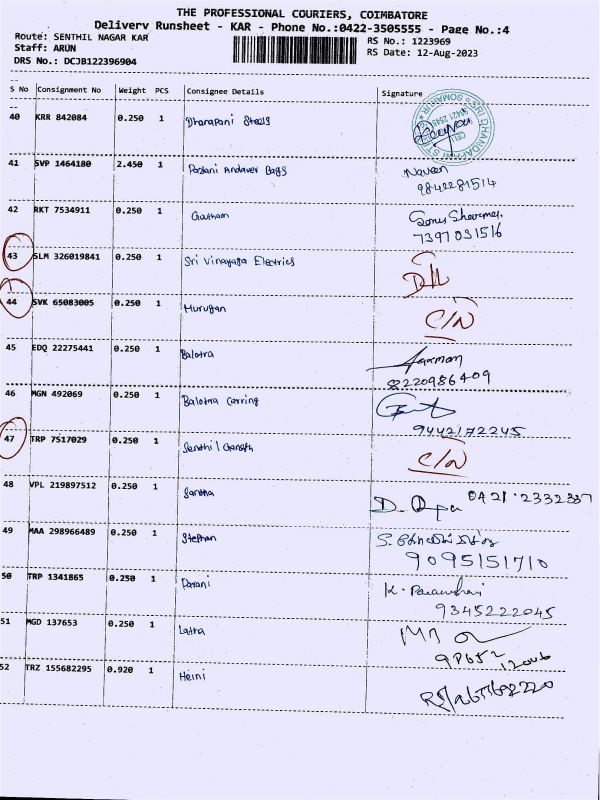 THE PROFESSIONAL COURIERS, COIMBATORE
Delivery Runsheet - KAR - Phone No.:0422-3505555 - Page No.:4
Route: SENTHIL NAGAR KAR
RS No.: 1223969
Staff: ARUN
RS Date: 12-Aug-2023
DRS No.: DCJB122396904
S No Consignment No Weight PCS Consignee Details Signature
40 KRR 842084 0.250 1 Dhanapani Steels
41 SVP 1464180 2.450 1 Palani Andaver Bags Naveen
9842281514
42 RKT 7534911 0.250 1 Gautham Sonu Sharma
7397031516
43 SLM 326019841 0.250 1 Sri Vinayaga Electrics D/L
44 SVK 65083005 0.250 1 Murugan C/N
45 EDQ 22275441 0.250 1 Balotra
8220986409
46 MGN 492069 0.250 1 Balotra Carring
9442172245
47 TRP 7517029 0.250 1 Senthil Ganesh C/N
48 VPL 219897512 0.250 1 Santha D. 0421-2332337
49 MAA 298966489 0.250 1 Stephan
9095151710
50 TRP 1341865 0.250 1 Parani K.
9345222045
51 MGD 137653 0.250 1 Latha
52 TRZ 155682295 0.920 1 Heini